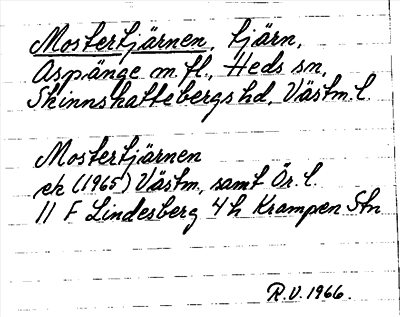 Mostertjärnen, tjärn,
Aspänge m. fl., Heds sn,
Skinnskattebergs hd, Västm. l.
Mostertjärnen
ek (1965) Västm, samt Ör. l.
11 F Lindesberg 4 h Krampen Stn
R.V. 1966.